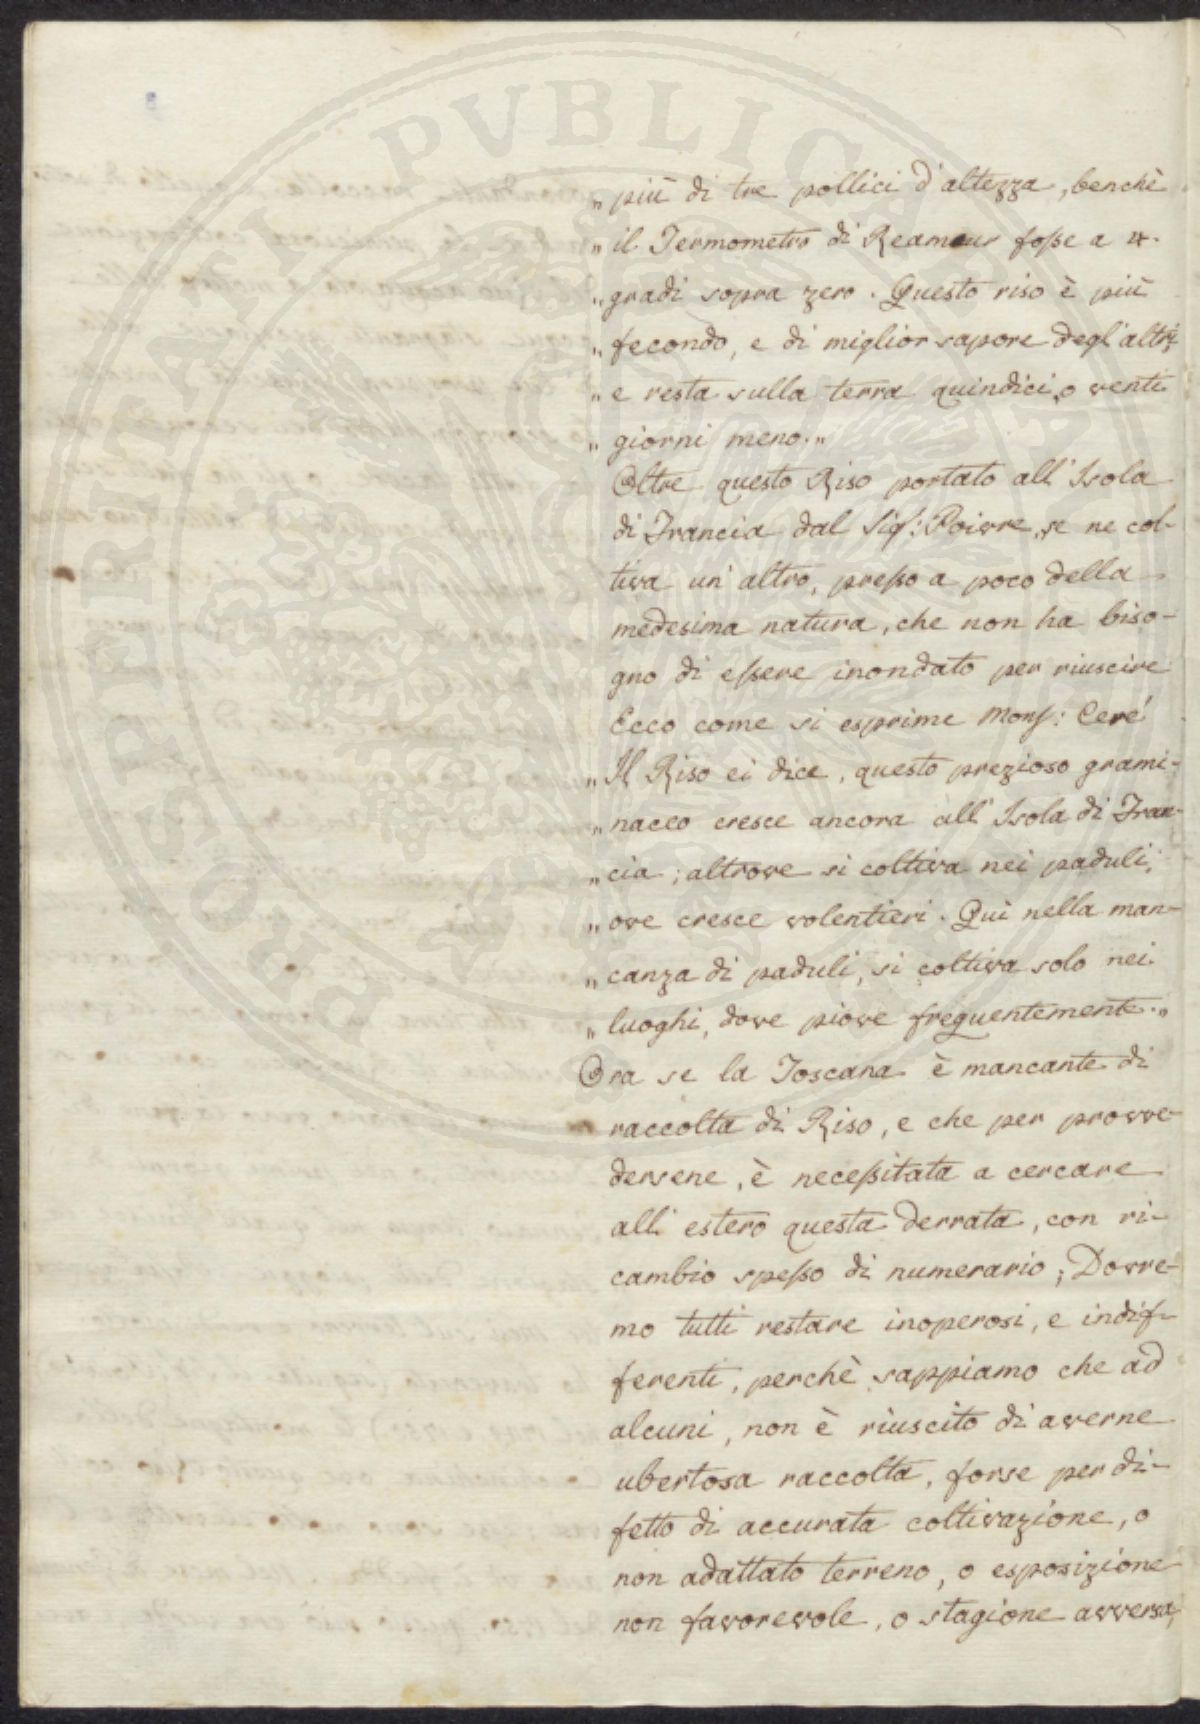 „ più di tre pollici d'altezza, benchè
„ il Termometro di Reameur fosse a 4.
„ gradi sopra zero. Questo riso è più
„ fecondo, e di miglior sapore degl'altri,
„ e resta sulla terra quindici, o venti
„ giorni meno. „
Oltre questo Riso portato all'Isola
di Francia dal Sig: Poivre, se ne col-
tiva un'altro, presso a poco della
medesima natura, che non ha biso-
gno di essere inondato per riuscire
Ecco come si esprime Mons: Ceré
„ Il Riso ei dice, questo prezioso grami-
„ naceo cresce ancora all'Isola di Fran-
„ cia; altrove si coltiva nei paduli,
„ ove cresce volentieri. Quì nella man-
„ canza di paduli, si coltiva solo nei
„ luoghi, dove piove frequentemente. „
Ora se la Toscana è mancante di
raccolta di Riso, e che per provve-
dersene, è necessitata a cercare
all'estero questa derrata, con ri-
cambio spesso di numerario; Dovre-
mo tutti restare inoperosi, e indif-
ferenti, perchè sappiamo che ad
alcuni, non è riuscito di averne
ubertosa raccolta, forse per di-
fetto di accurata coltivazione, o
non adattato terreno, o esposizione
non favorevole, o stagione avversa,
PROSPERITATI PUBLICAE